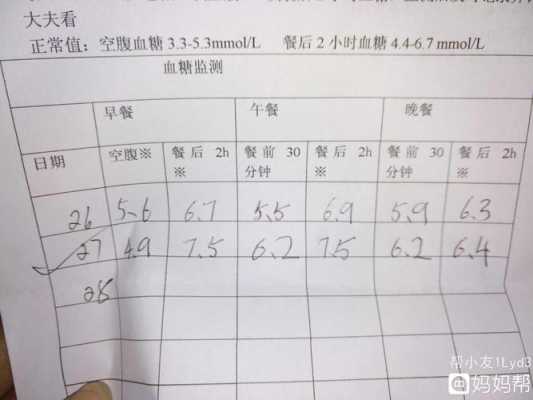 大夫看
正常值：空腹血糖 3.3-5.3mmol/L 餐后 2 小时血糖 4.4-6.7 mmol/L
血糖监测
早餐 午餐 晚餐
日期 空腹※ 餐后 2h ※ 餐前 30 分钟 餐后 2h ※ 餐前 30 分钟 餐后 2h ※
26 5.6 6.7 5.5 6.9 5.9 6.3
27 4.9 7.5 6.2 7.5 6.2 6.4
28
帮小友1Lyd3
妈妈帮